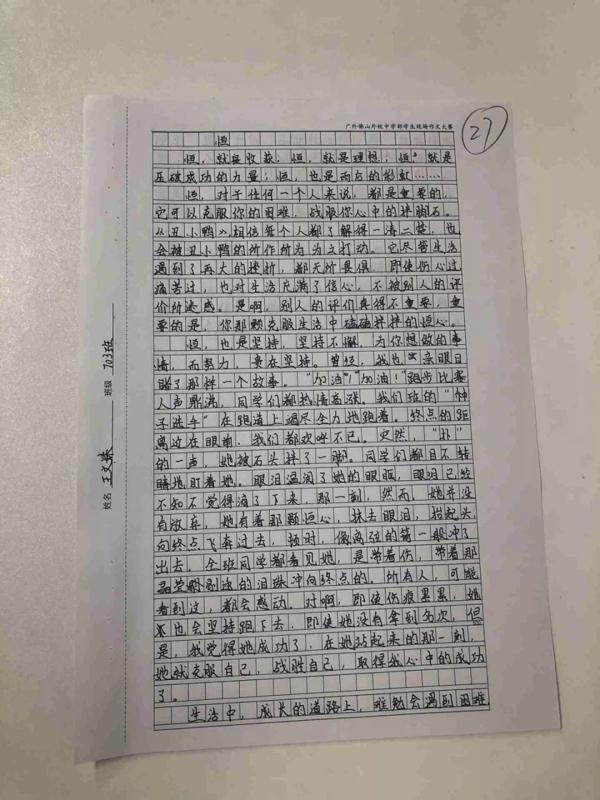 广外佛山外校中学部学生现场作文大赛
27
恒
恒，就是收获；恒，就是理想；恒，就是
压破成功的力量；恒，也是雨后的彩虹……
恒，对于任何一个人来说，都是重要的，
它可以克服你的困难，战服你心中的拌脚石。
《丑小鸭》相信每个人都了解得一清二楚，也
会被丑小鸭的所作所为为之打动。它尽管生活
遇到了再大的挫折，都无所畏惧，即使伤心过
痛苦过，也对生活充满了信心，不被别人的评
价所迷惑。是啊，别人的评价真得不重要，重
要的是，你那颗克服生活中磕磕拌拌的恒心。
恒，也是坚持，坚持不懈，为你想做的事
情，而努力，贵在坚持。曾经，我也亲眼目
睹了那样一个故事。"加油""加油！"跑步比赛
人声鼎沸，同学们都热情高涨。我们班的"种
子选手"在跑道上竭尽全力地跑着。终点的距
离近在眼前，我们都欢呼不已。突然，"扑"
的一声，她被石头拌了一脚。同学们都目不转
睛地盯着她。眼泪湿润了她的眼眶，眼泪已经
不知不觉得滴了下来，那一刻，然而，她并没
有放弃，她有着那颗恒心，抹去眼泪，抬起头
向终点飞奔过去，顿时，像离弦的箭一般冲了
出去，全班同学都看见她，是带着伤，带着那
晶莹剔透的泪珠冲向终点的。所有人，可能
看到过，都会感动。对啊，即使伤痕累累，她
也会坚持跑下去，即使她没有拿到名次，但
是，我觉得她成功了，在她站起来的那一刻，
她就克服自己，战胜自己，取得我心中的成功
了。
生活中，成长的道路上，难勉会遇到困难
姓名 王文 班级 703班